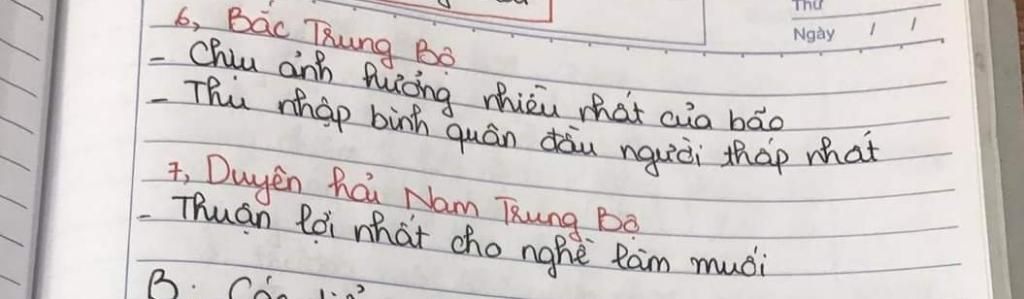 Thứ
Ngày / /
6, Bắc Trung Bộ
- Chịu ảnh hưởng nhiều nhất của bão
- Thu nhập bình quân đầu người thấp nhất
7, Duyên hải Nam Trung Bộ
- Thuận lợi nhất cho nghề làm muối
B.